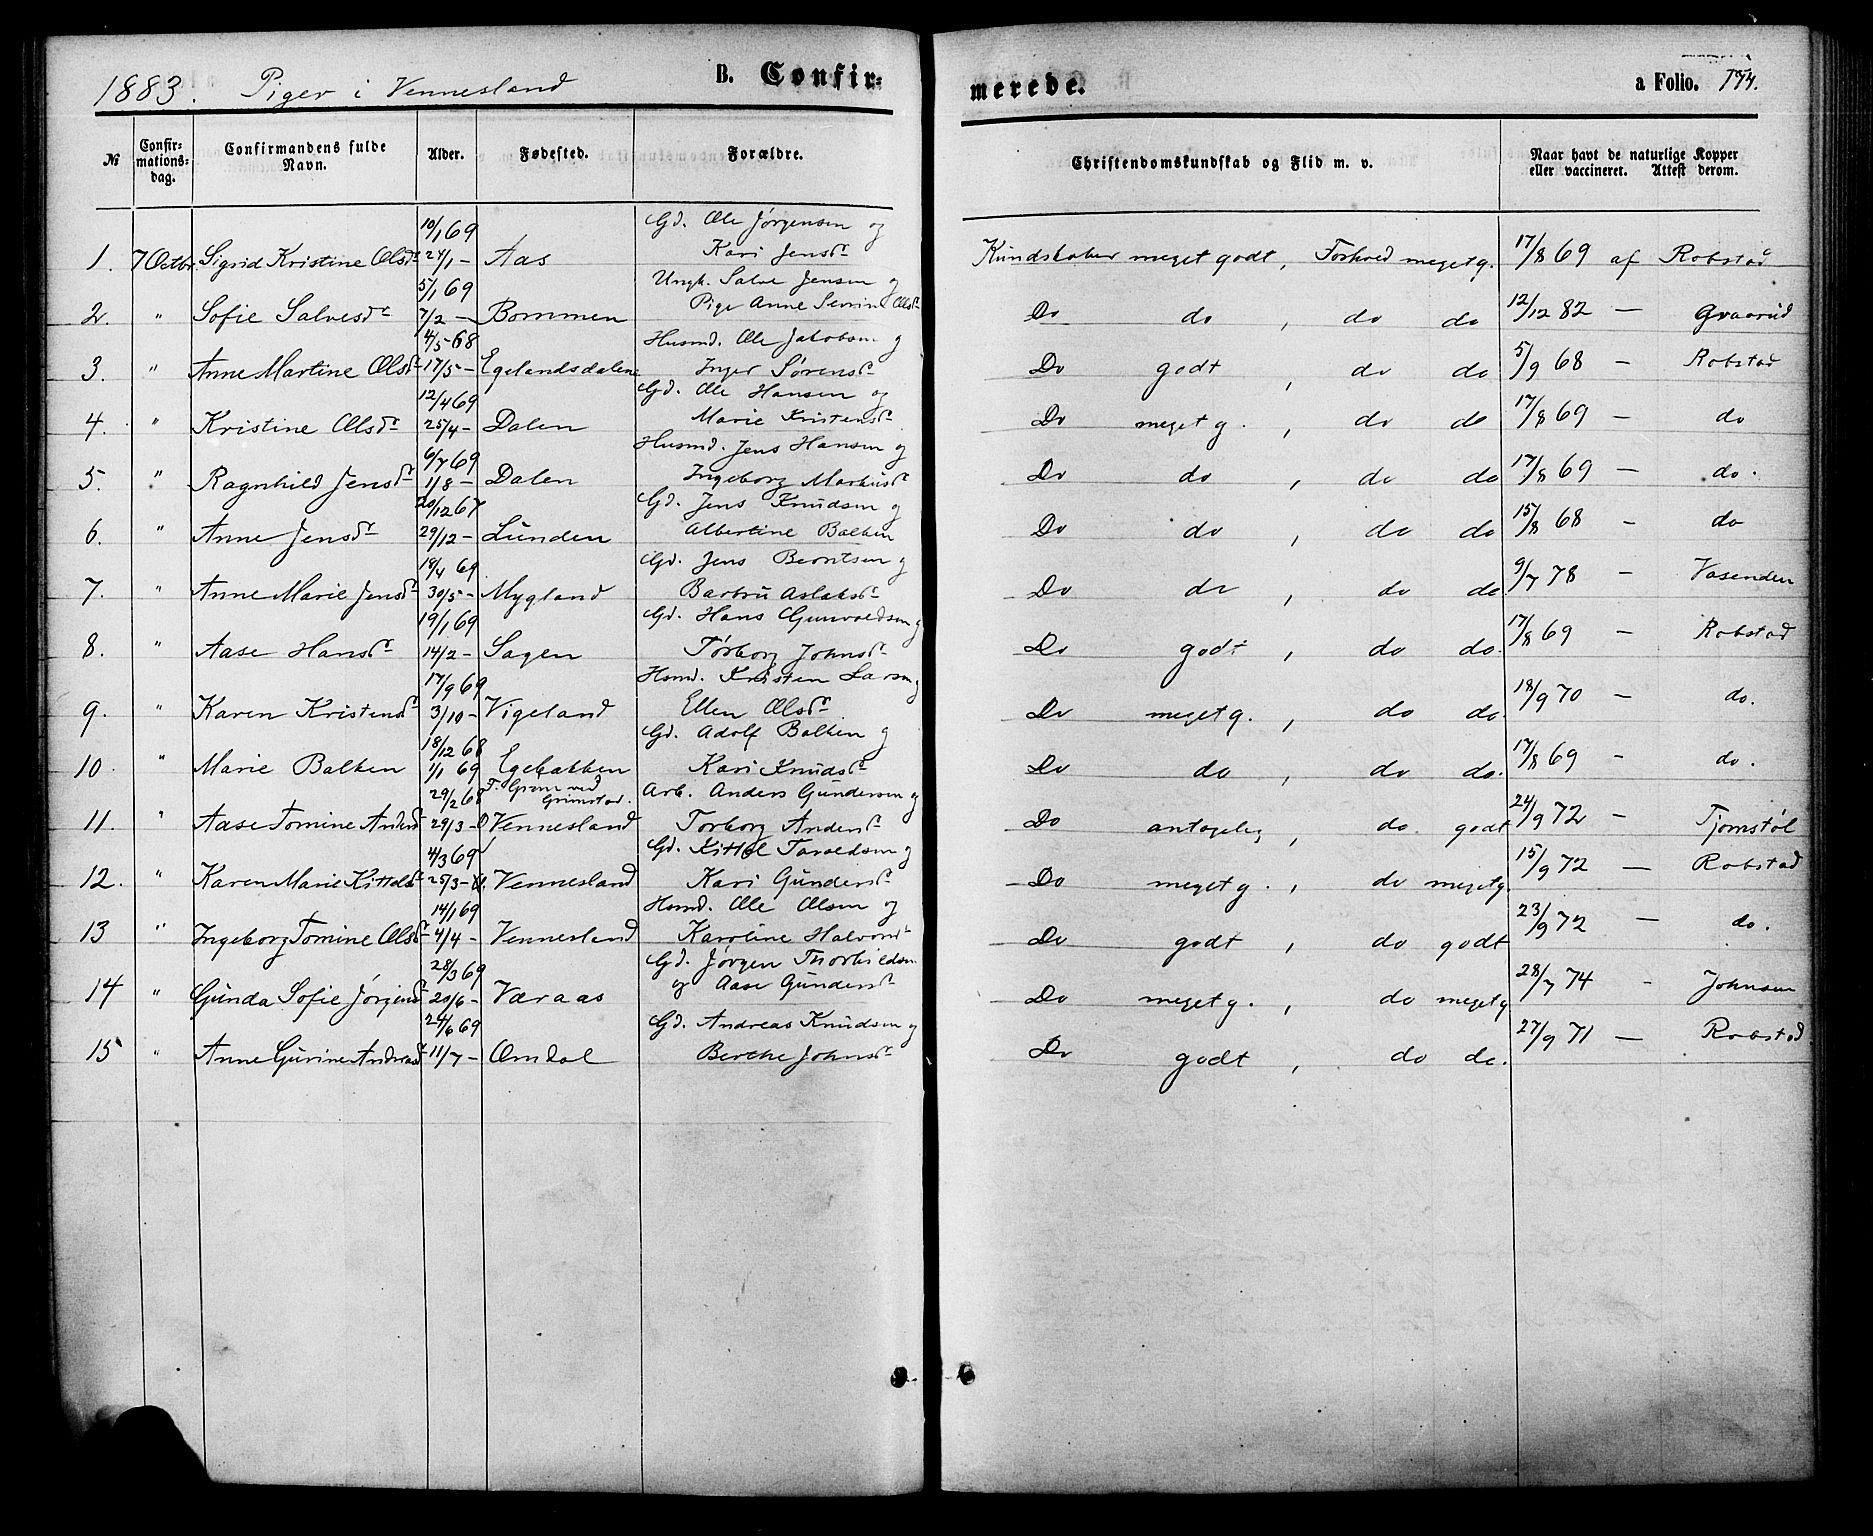 1883. Piger i Vennesland B. Confir=
merede. a Folio. 174.
№ Confirmations-dag. Confirmandens fulde Navn. Alder. Fødested. Forældre. Christendomskundskab og Flid m. v. Naar havt de naturlige Kopper eller vaccineret. Attest derom.
10/1 69 Gd. Ole Jørgensen og
1. 7 Octbr. Sigrid Kristine Olsdr 24/1 – Aas Kari Jensdr Kundskaber meget godt, Forhold meget g. 17/8 69 af Robstad
5/1 69 Ungk. Salve Jensen og
2. " Sofie Salvesdr 7/2 – Bommen Pige Anne Sevrine Olsdr Do do, do do 12/12 82 — Graarud
4/5 68 Husmd. Ole Jakobsen og
3. " Anne Martine Olsdr 17/5 – Egelandsdalene Inger Sørensdr Do godt, do do 5/9 68 — Robstad
12/4 69 Gd. Ole Hansen og
4. " Kristine Olsdr 25/4 – Dalen Marie Kristensdr Do meget g., do do 17/8 69 — do
6/7 69 Husmd. Jens Hansen og
5. " Ragnhild Jensdr 1/8 – Dalen Ingeborg Markusdr Do do, do do 17/8 69 — do.
20/12 67 Gd. Jens Knudsen og
6. " Anne Jensdr 29/12 – Lunden Albertine Balken Do do, do do 15/8 68 — do
18/4 69 Gd. Jens Berntsen og
7. " Anne Marie Jensdr 30/5 – Mygland Barbru Aslaksdr Do do, do do 9/7 78 — Vasenden
19/1 69 Gd. Hans Gunvaldsen og
8. " Aase Hansdr 14/2 – Sagen Tørborg Johnsdr Do godt, do do. 17/8 69 — Robstad
17/9 69 Husmd. Kristen Larsen og
9. " Karen Kristensdr 3/10 – Vigeland Ellen Olsdr Do meget g., do do. 18/9 70 — do.
18/12 68 Gd. Adolf Balken og
10. " Marie Balken 1/1 69 Egebakken Kari Knudsdr Do do, do do. 17/8 69 — do.
29/2 68 F. Grøm ved Grimstad. Arb. Anders Gundersen og
11. " Aase Tomine Andersdr 29/3 – Vennesland Torborg Andersdr Do antagelig, do. godt 24/9 72 — Tjomstøl
4/3 69 Gd. Kittel Tarvaldsen og
12. " Karen Marie Kittelsdr 25/3 – Vennesland Kari Gundersdr Do meget g., do meget g. 15/9 72 — Robstad
14/1 69 Husmd. Ole Olsen og
13 " Ingeborg Tomine Olsdr 4/4 – Vennesland Karoline Halvorsdr Do godt, do godt 23/9 72 — do.
28/3 69 Gd. Jørgen Thorkildsen
14 " Gunda Sofie Jørgensdr 20/6 – Væraas og Aase Gundersdr Do meget g., do meget g 28/7 74 - Johnsen
24/6 69 Gd. Andreas Knudsen og
15 " Anne Gurine Andreasdr 11/7 – Omdal Berthe Johnsdr Do godt, do do. 27/9 71 — Robstad